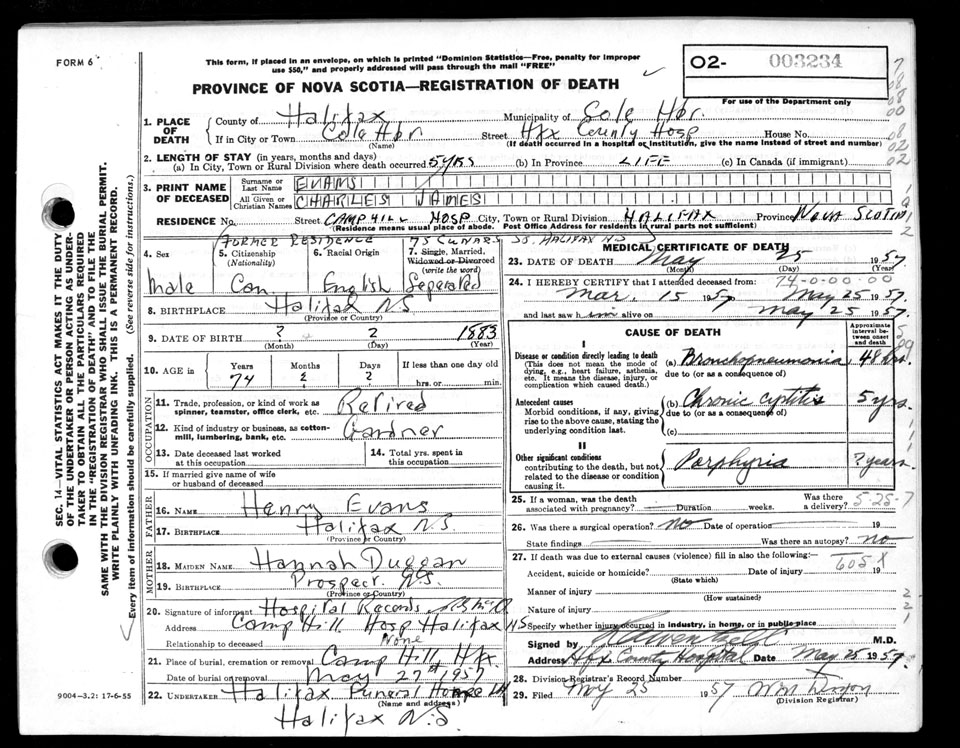 FORM 6
This form, if placed in an envelope, on which is printed "Dominion Statistics—Free, penalty for improper
use $50," and properly addressed will pass through the mail "FREE"
O2- 003234
For use of the Department only
PROVINCE OF NOVA SCOTIA—REGISTRATION OF DEATH
1. PLACE OF DEATH
County of Halifax Municipality of Cole Hbr.
If in City or Town Cole Hbr Street Hfx County Hosp House No.
(Name) (If death occurred in a hospital or institution, give the name instead of street and number)
2. LENGTH OF STAY (in years, months and days)
(a) In City, Town or Rural Division where death occurred 5 yrs (b) In Province LIFE (c) In Canada (if immigrant)
3. PRINT NAME OF DECEASED
Surname or Last Name EVANS
All Given or Christian Names CHARLES JAMES
RESIDENCE No. Street CAMP HILL HOSP City, Town or Rural Division HALIFAX Province NOVA SCOTIA
(Residence means usual place of abode. Post Office Address for residents in rural parts not sufficient)
FORMER RESIDENCE 75 CUNARD ST. HALIFAX NS
4. Sex
male
5. Citizenship (Nationality)
Can.
6. Racial Origin
English
7. Single, Married, Widowed or Divorced (write the word)
Seperated
8. BIRTHPLACE Halifax N.S
(Province or Country)
9. DATE OF BIRTH ? 2 1883
(Month) (Day) (Year)
10. AGE in
Years Months Days If less than one day old
74 2 2 hrs. or min.
OCCUPATION
11. Trade, profession, or kind of work as spinner, teamster, office clerk, etc. Retired
12. Kind of industry or business, as cotton-mill, lumbering, bank, etc. Gardner
13. Date deceased last worked at this occupation
14. Total yrs. spent in this occupation
15. If married give name of wife or husband of deceased
FATHER
16. NAME Henry Evans
17. BIRTHPLACE Halifax N.S.
(Province or Country)
MOTHER
18. MAIDEN NAME Hannah Duggan
19. BIRTHPLACE Prospect N.S.
(Province or Country)
20. Signature of informant Hospital Records
Address Camp Hill Hosp Halifax NS
Relationship to deceased None
21. Place of burial, cremation or removal Camp Hill, Hfx
Date of burial or removal May 27th 1957
22. UNDERTAKER Halifax Funeral Home
(Name and address)
Halifax N.S
9004-3.2: 17-6-55
MEDICAL CERTIFICATE OF DEATH
23. DATE OF DEATH May 25 1957
(Month) (Day) (Year)
24. I HEREBY CERTIFY that I attended deceased from: 74-0-00-00
Mar. 15 1957 May 25 1957
and last saw him alive on May 25 1957.
CAUSE OF DEATH
Approximate interval between onset and death
I
Disease or condition directly leading to death
(This does not mean the mode of dying, e.g., heart failure, asthenia, etc. It means the disease, injury, or complication which caused death.)
(a) Bronchopneumonia 48 hrs.
due to (or as a consequence of)
Antecedent causes
Morbid conditions, if any, giving rise to the above cause, stating the underlying condition last.
(b) Chronic cystitis 5 yrs.
due to (or as a consequence of)
(c)
II
Other significant conditions
contributing to the death, but not related to the disease or condition causing it.
Porphyria ? years
25. If a woman, was the death associated with pregnancy? Duration weeks. Was there a delivery? 5-25-7
26. Was there a surgical operation? no Date of operation 19
State findings Was there an autopsy? no
27. If death was due to external causes (violence) fill in also the following:— 605X
Accident, suicide or homicide? Date of injury 19
(State which)
Manner of injury
(How sustained)
Nature of injury
Specify whether injury occurred in industry, in home, or in public place
Signed by M.D.
Address Hfx County Hospital Date May 25 1957.
28. Division Registrar's Record Number
29. Filed May 25 1957
(Division Registrar)
SEC. 14—VITAL STATISTICS ACT MAKES IT THE DUTY
OF THE UNDERTAKER OR PERSON ACTING AS UNDER-
TAKER TO OBTAIN ALL THE PARTICULARS REQUIRED
IN THE "REGISTRATION OF DEATH" AND TO FILE THE
SAME WITH THE DIVISION REGISTRAR WHO SHALL ISSUE THE BURIAL PERMIT.
WRITE PLAINLY WITH UNFADING INK. THIS IS A PERMANENT RECORD.
Every item of information should be carefully supplied. (See reverse side for instructions.)